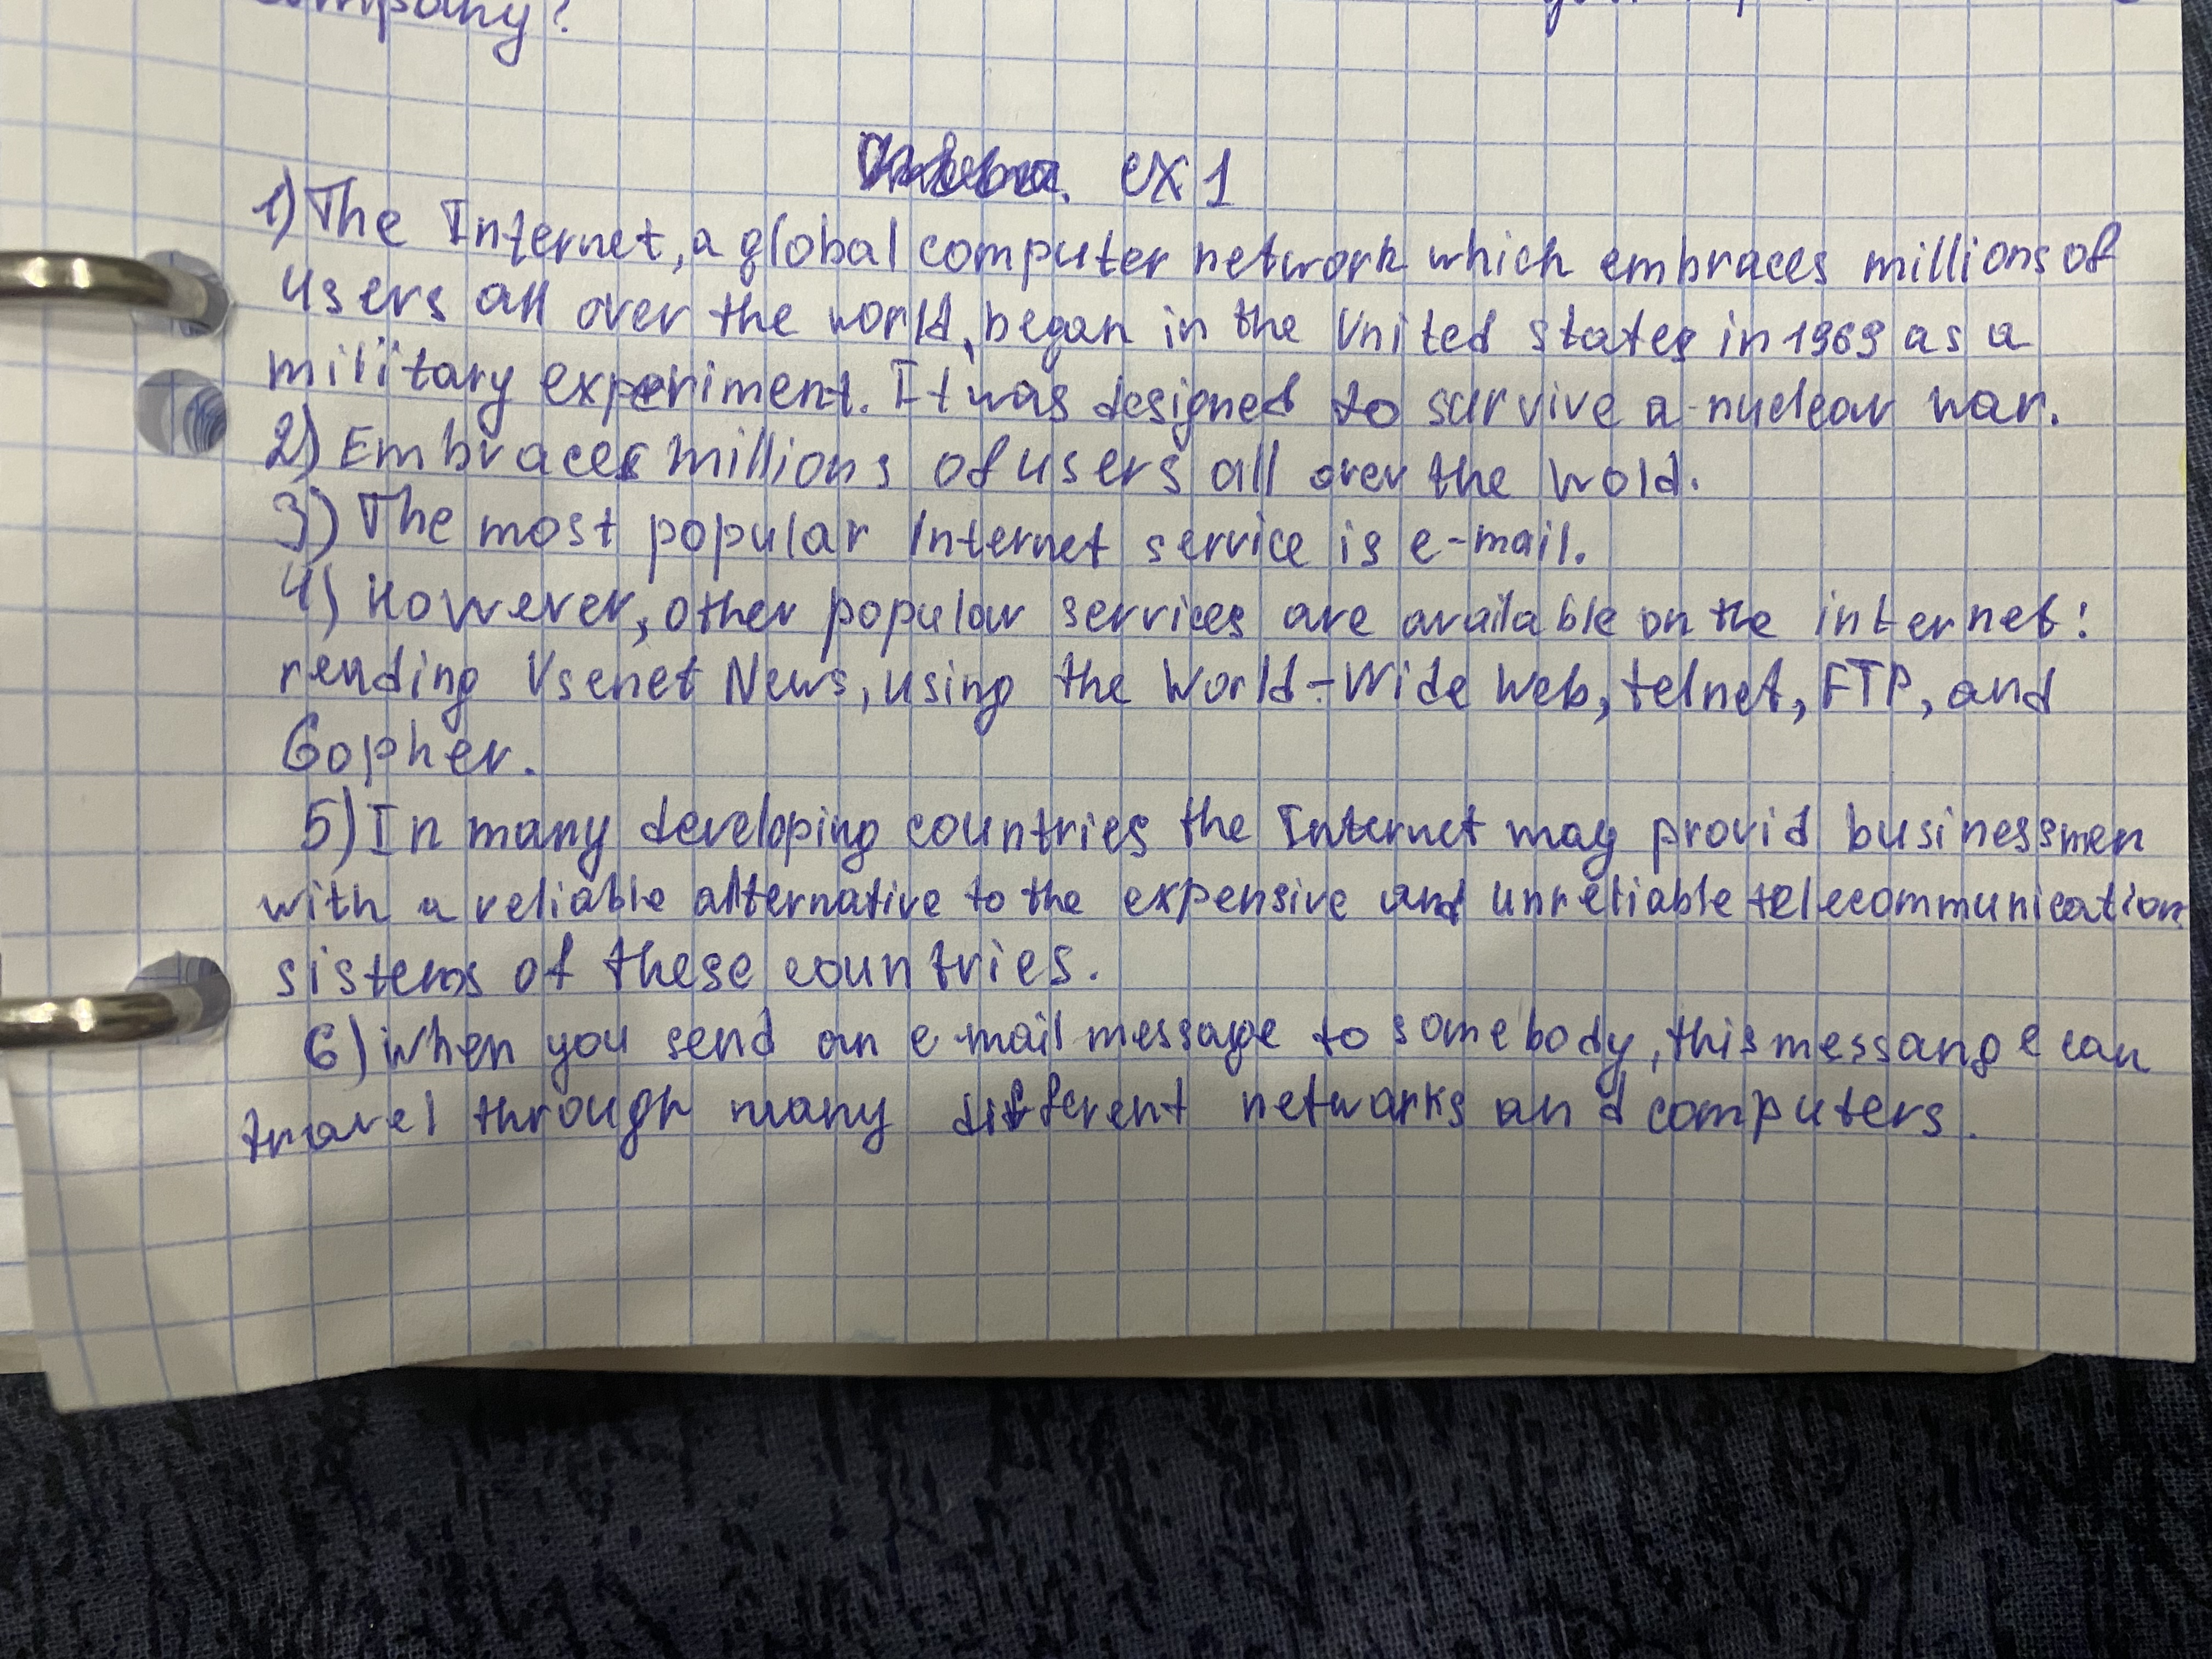 company?
ex 1
1) The Internet, a global computer network which embraces millions of
users all over the world, began in the United States in 1969 as a
military experiment. It was designed to survive a nuclear war.
2) Embraces millions of users all over the wold.
3) The most popular Internet service is e-mail.
4) However, other popular services are available on the internet:
reading Usenet News, using the World-Wide Web, telnet, FTP, and
Gopher.
5) In many developing countries the Internet may provid businessmen
with a reliable alternative to the expensive and unreliable telecommunication
sistems of these countries.
6) when you send an e-mail message to somebody, this messange can
travel through many different networks and computers.